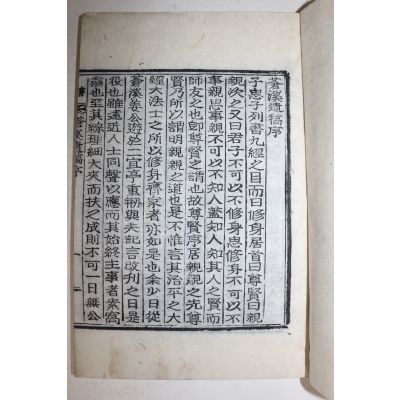 蒼溪遺稿序
子思子列書九經之目而曰修身居首曰尊賢曰親
親次之又曰君子不可以不修身思修身不可以不
事親思事親不可以不知人蓋知人知其人之賢而
師友之也卽尊賢之謂也故尊賢序居親親之先尊
賢乃所以謂明親親之道也是不惟言其治平之大
經大法士之所以修身齊家者亦如是也余少日從
蒼溪姜公遊於二宜亭重刱與夫記言改刋之日是
役也雖遠近人士同聲以應而其始終主事者素窩
也至其綜理細大夾而扶之成則不可一日無公
蒼溪遺稿序
一